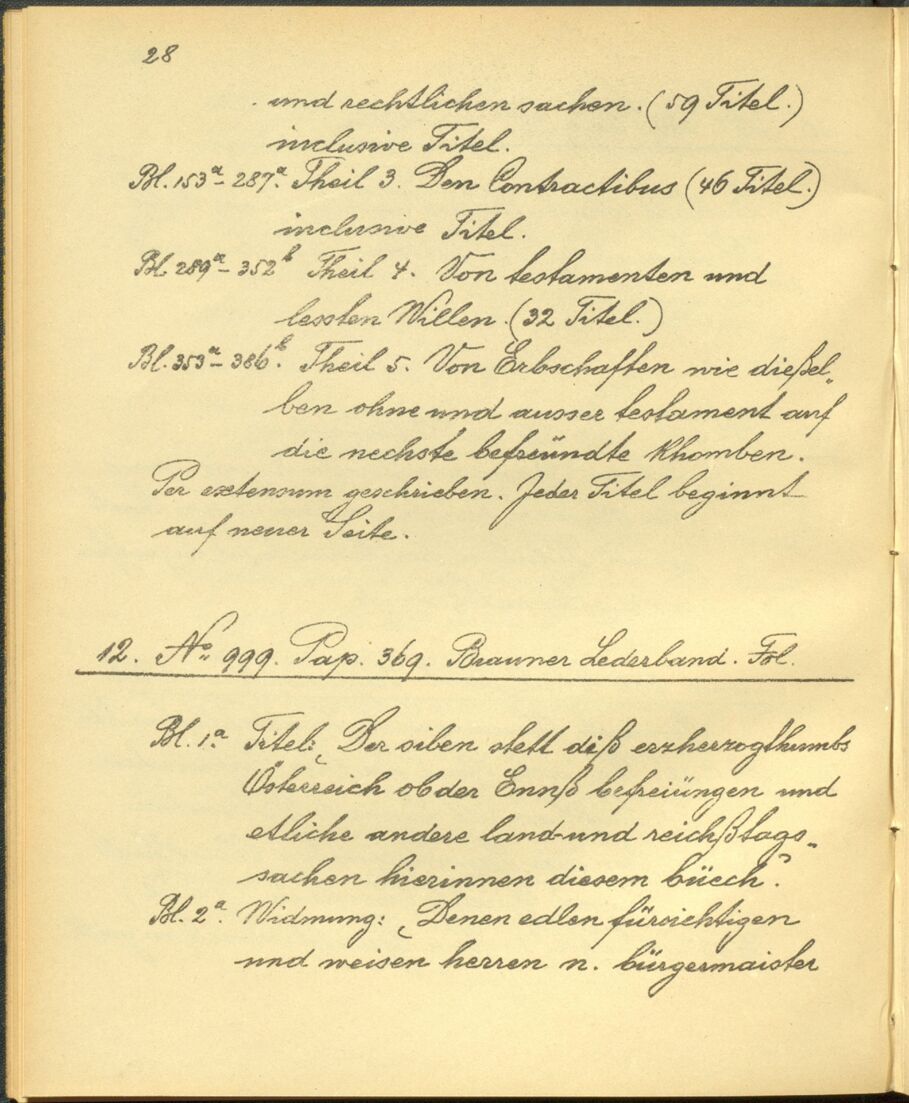 28
und rechtlichen sachen. (59 Titel.)
inclusive Titel.
Bl. 153a - 287a. Theil 3. Den Contractibus (46 Titel.)
inclusive Titel.
Bl. 289a - 352b Theil 4. Von testamenten und
lessten Willen. (32 Titel.)
Bl. 353a - 386b. Theil 5. Von Erbschaften wie dießel„
ben ohne und ausser testament auf
die nechste befreündte Khomben.
Per extensum geschrieben. Jeder Titel beginnt
auf neuer Seite.
12. No 999. Pap. 369. Brauner Lederband. Fol.
Bl. 1a. Titel: „Der siben stett diß erzherzogthumbs
Österreich ob der Ennß befreiüngen und
etliche andere land- und reichßtags„
sachen hierinnen diesem büech.“
Bl. 2a. Widmung: „Denen edlen fürsichtigen
und weisen herren n. bürgermaister